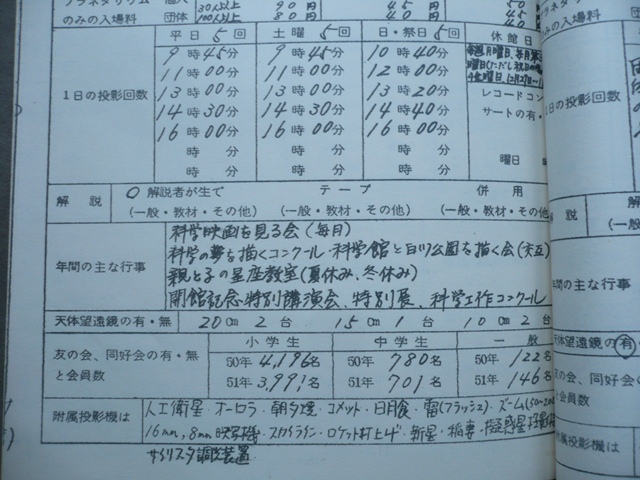 プラネタリウム 個人
のみの入場料 団体 30人以上 90円 45円
100人以上 80円 40円
平日 5回 土曜 5回 日・祭日 5回 休館日
1日の投影回数
9時45分 9時45分 10時40分
11時00分 11時00分 12時00分
13時00分 13時00分 13時20分
14時30分 14時30分 14時40分
16時00分 16時00分 16時00分
時 分 時 分 時 分
時 分 時 分 時 分
毎週月曜日、
レコードコン
サートの有・
曜日
解説 ○解説者が生で テープ 併用
(一般・教材・その他) (一般・教材・その他) (一般・教材・その他)
年間の主な行事
科学映画を見る会(毎月)
科学の夢を描くコンクール・科学館と
親と子の星座教室(夏休み、冬休み)
開館記念特別講演会、特別展、科学工作コンクール
天体望遠鏡の有・無 20cm 2台 15cm 1台 10cm 2
友の会、同好会の有・無
と会員数
小学生 中学生 一般
50年 4,196名 50年 780名 50年 122名
51年 3,991名 51年 701名 51年 146名
附属投影機は
人工衛星・オーロラ・朝夕焼・コメット・日月食・雷(フラッシュ)・ズーム
16mm, 8mm映写機・スカイライン・ロケット打上げ・新星・稲妻・擬惑星
サイリスタ調光装置
のみの入場料
1日の投影回数
解説
年間の主な行事
天体望遠鏡の有
友の会、同好会
と会員数
附属投影機は